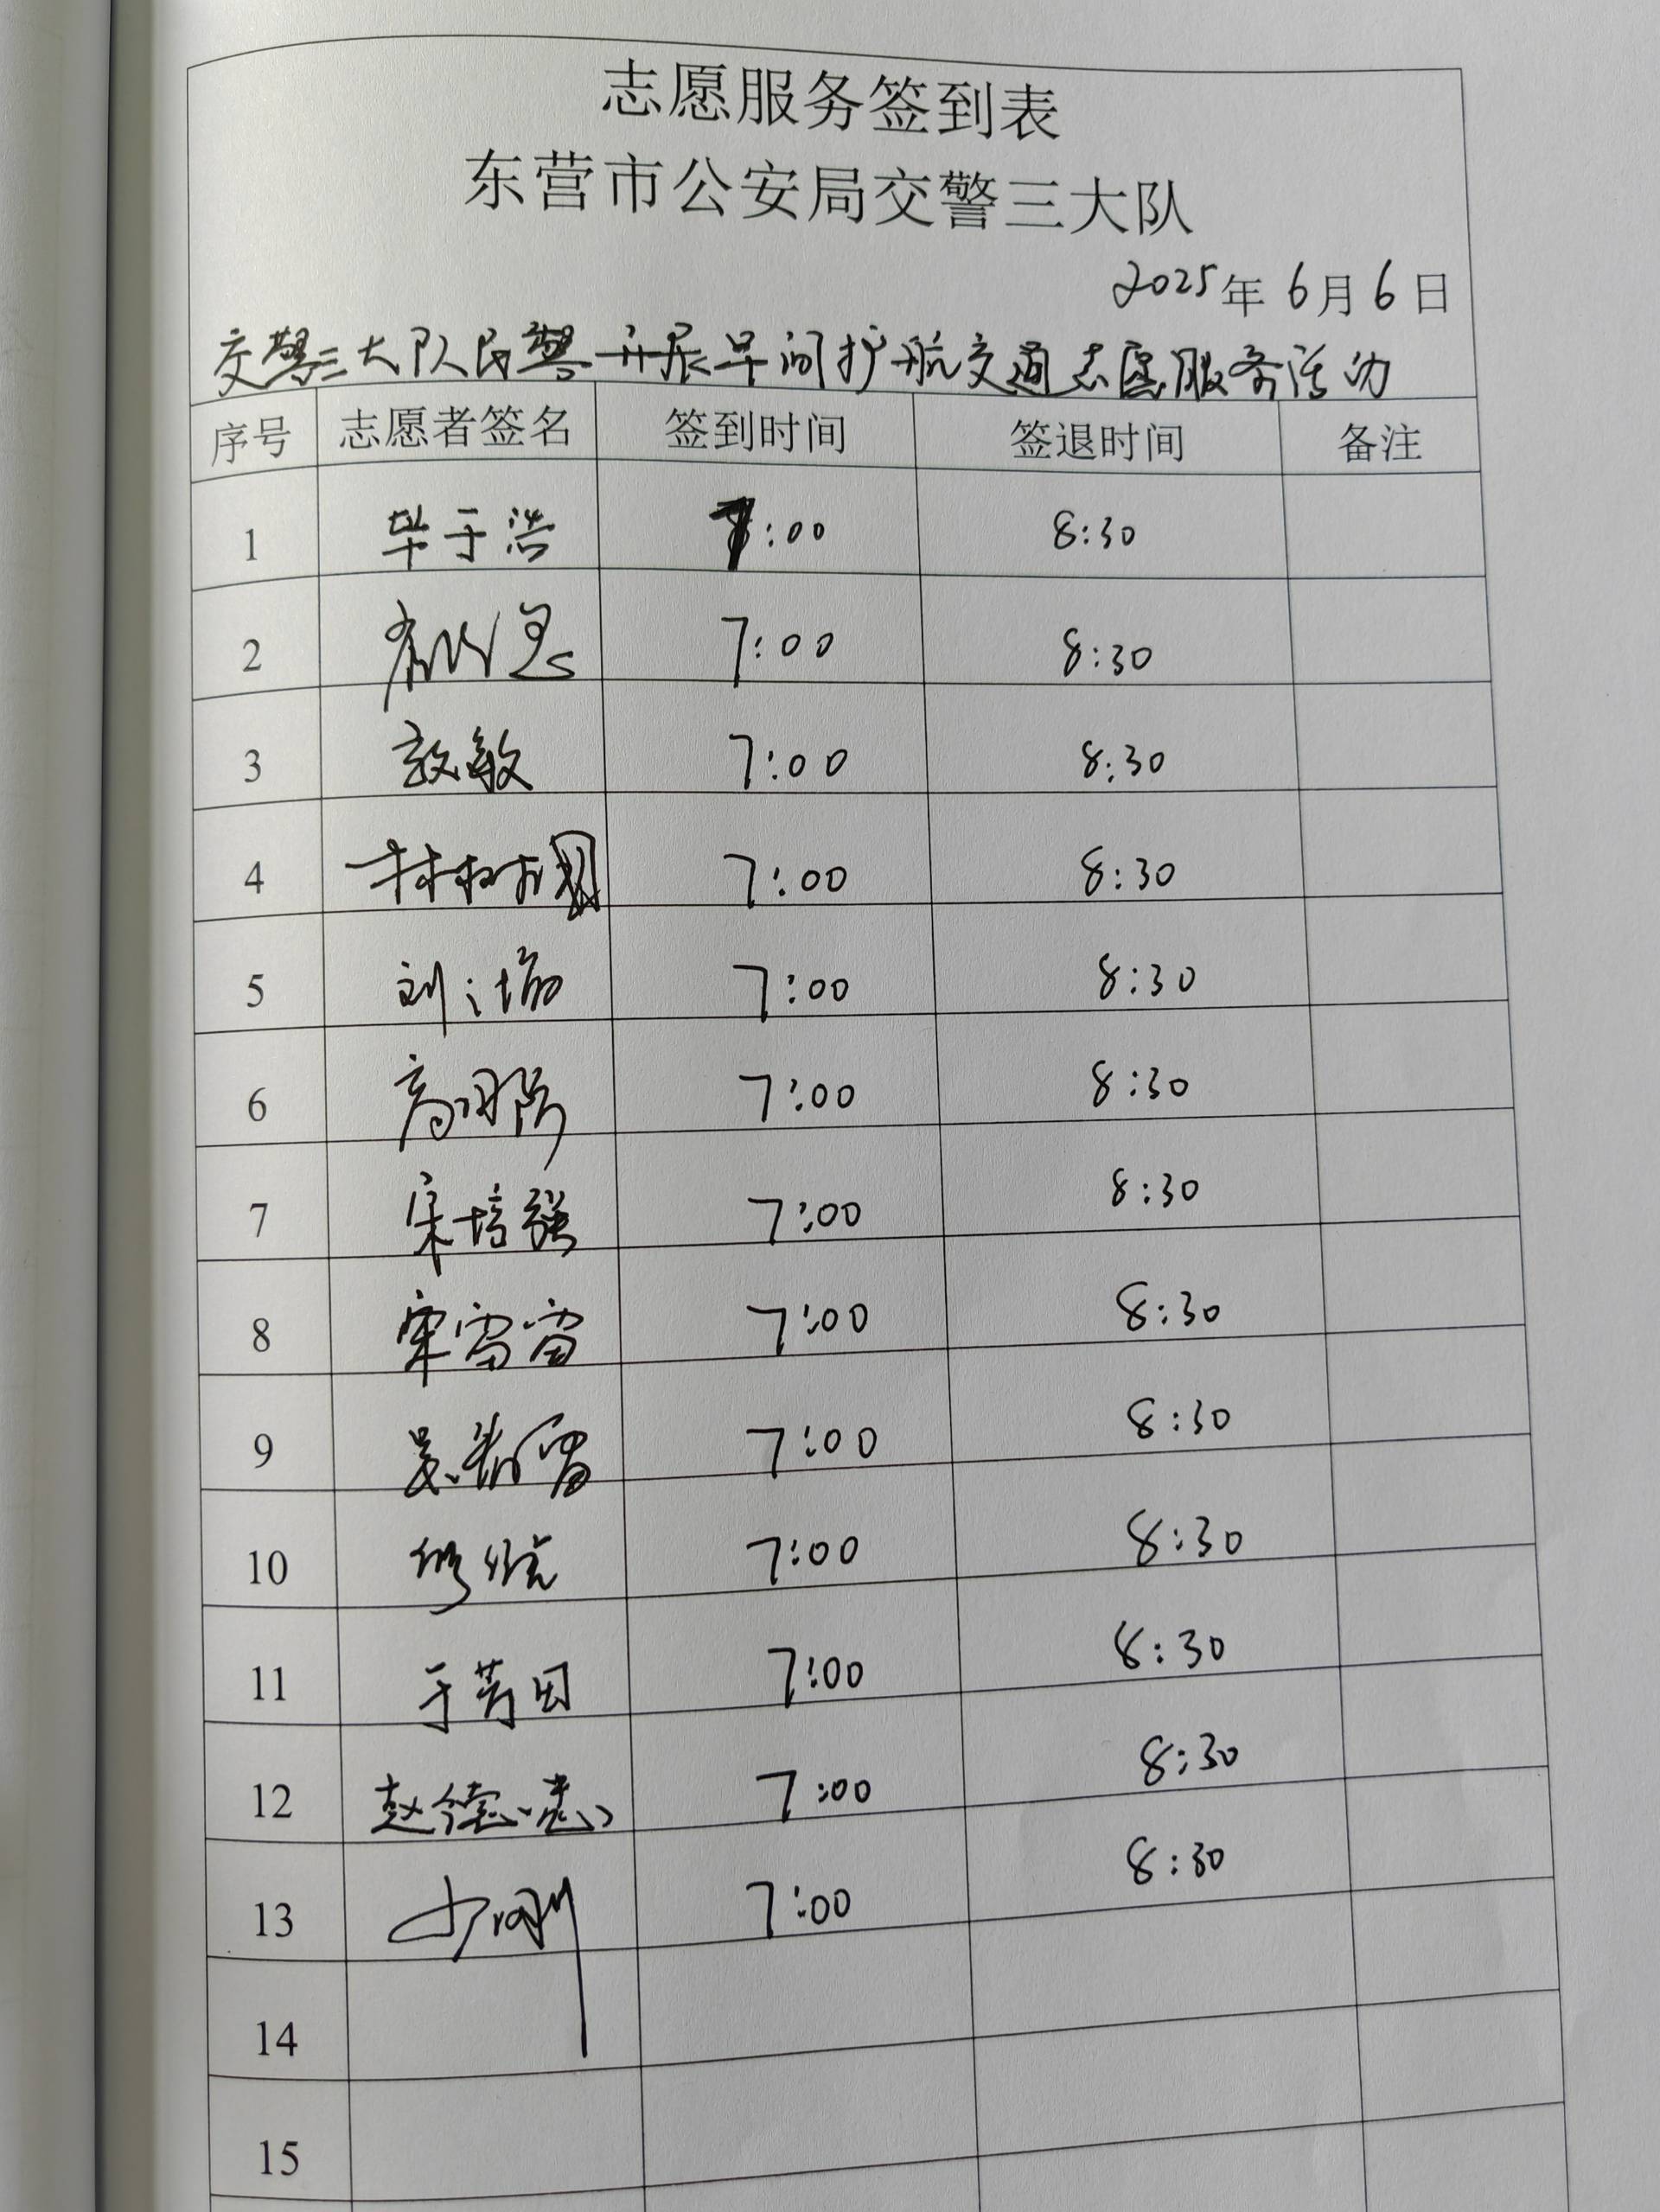 志愿服务签到表
东营市公安局交警三大队
2025年6月6日
交警三大队民警开展早间护航交通志愿服务活动
序号 志愿者签名 签到时间 签退时间 备注
1 毕于浩 7:00 8:30
2 7:00 8:30
3 敏 7:00 8:30
4 林树国 7:00 8:30
5 刘 7:00 8:30
6 高 7:00 8:30
7 宋培强 7:00 8:30
8 雷雷 7:00 8:30
9 吴 7:00 8:30
10 修 7:00 8:30
11 于芳田 7:00 8:30
12 赵德志 7:00 8:30
13 7:00 8:30
14
15